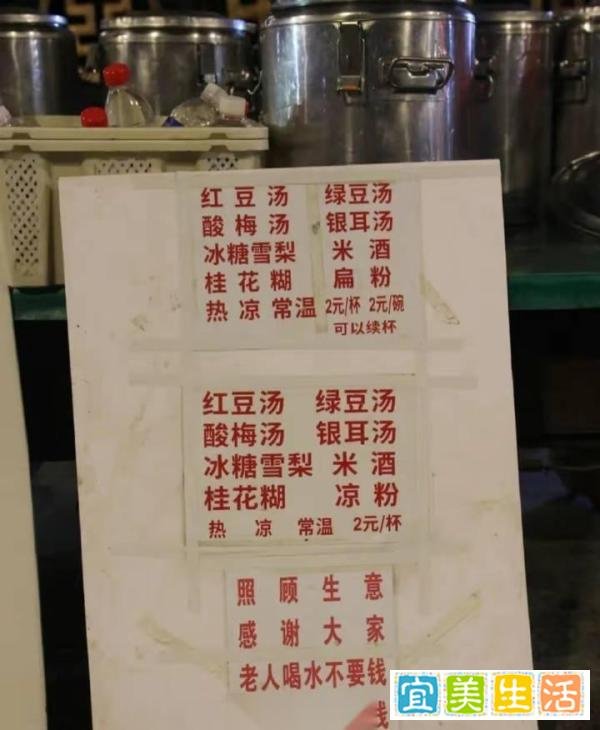 红豆汤 绿豆汤
酸梅汤 银耳汤
冰糖雪梨 米酒
桂花糊 扁粉
热 凉 常温 2元/杯 2元/碗
可以续杯
红豆汤 绿豆汤
酸梅汤 银耳汤
冰糖雪梨 米酒
桂花糊 凉粉
热 凉 常温 2元/杯
照顾生意
感谢大家
老人喝水不要钱
宜美生活